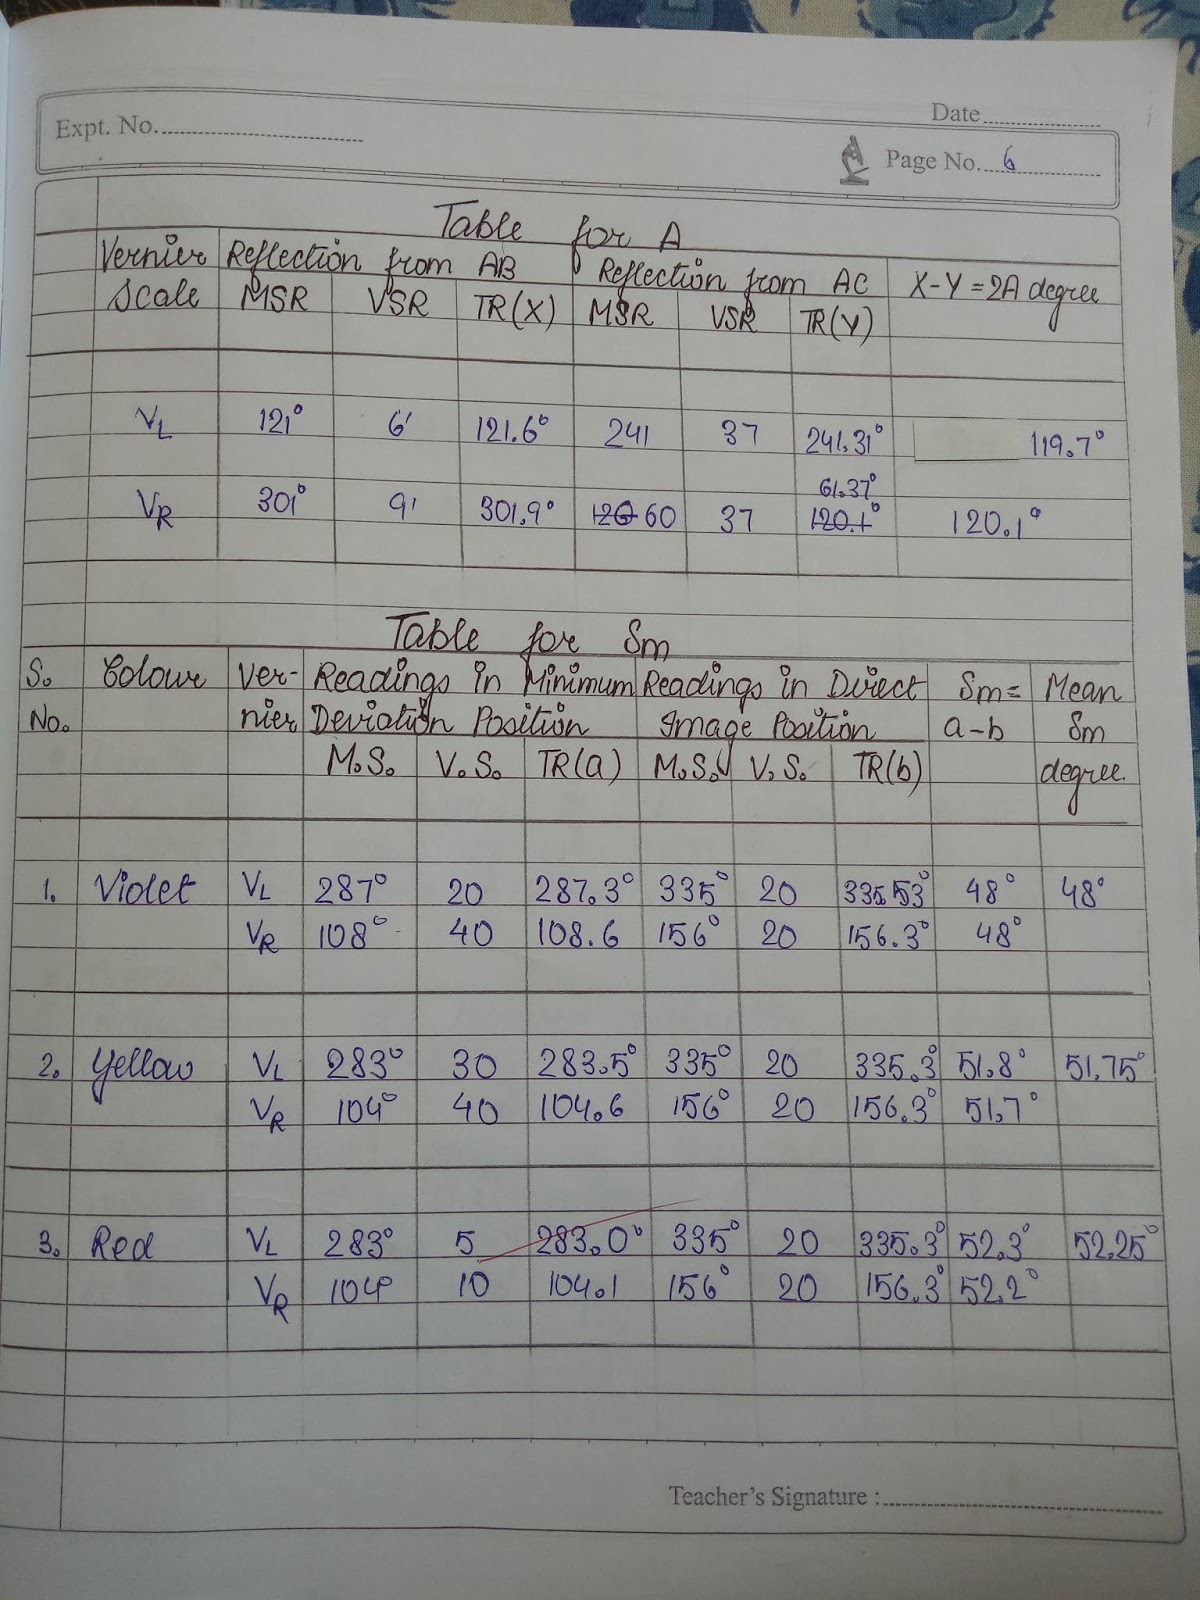 Date
Expt. No.
Page No. 6
Table for A
Vernier Scale | Reflection from AB | Reflection from AC | X-Y = 2A degree
MSR | VSR | TR(X) | MSR | VSR | TR(Y)
VL | 121° | 6' | 121.6° | 241 | 37 | 241.31° | 119.7°
61.37°
VR | 301° | 9' | 301.9° | 120 60 | 37 | 120.1° | 120.1°
Table for Sm
S. No. | Colour | Ver-nier | Readings in Minimum Deviation Position | Readings in Direct Image Position | Sm = a-b | Mean Sm degree.
M.S. | V.S. | TR(a) | M.S. | V.S. | TR(b)
1. | Violet | VL | 287° | 20 | 287.3° | 335° | 20 | 48° | 48°
VR | 108° | 40 | 108.6 | 156° | 20 | 156.3° | 48°
2. | Yellow | VL | 283° | 30 | 283.5° | 335° | 20 | 335.3° | 51.8° | 51.75°
VR | 104° | 40 | 104.6 | 156° | 20 | 156.3° | 51.7°
3. | Red | VL | 283° | 5 | 283.0° | 335° | 20 | 335.3° | 52.3° | 52.25°
VR | 104° | 10 | 104.1 | 156° | 20 | 156.3° | 52.2°
Teacher's Signature :